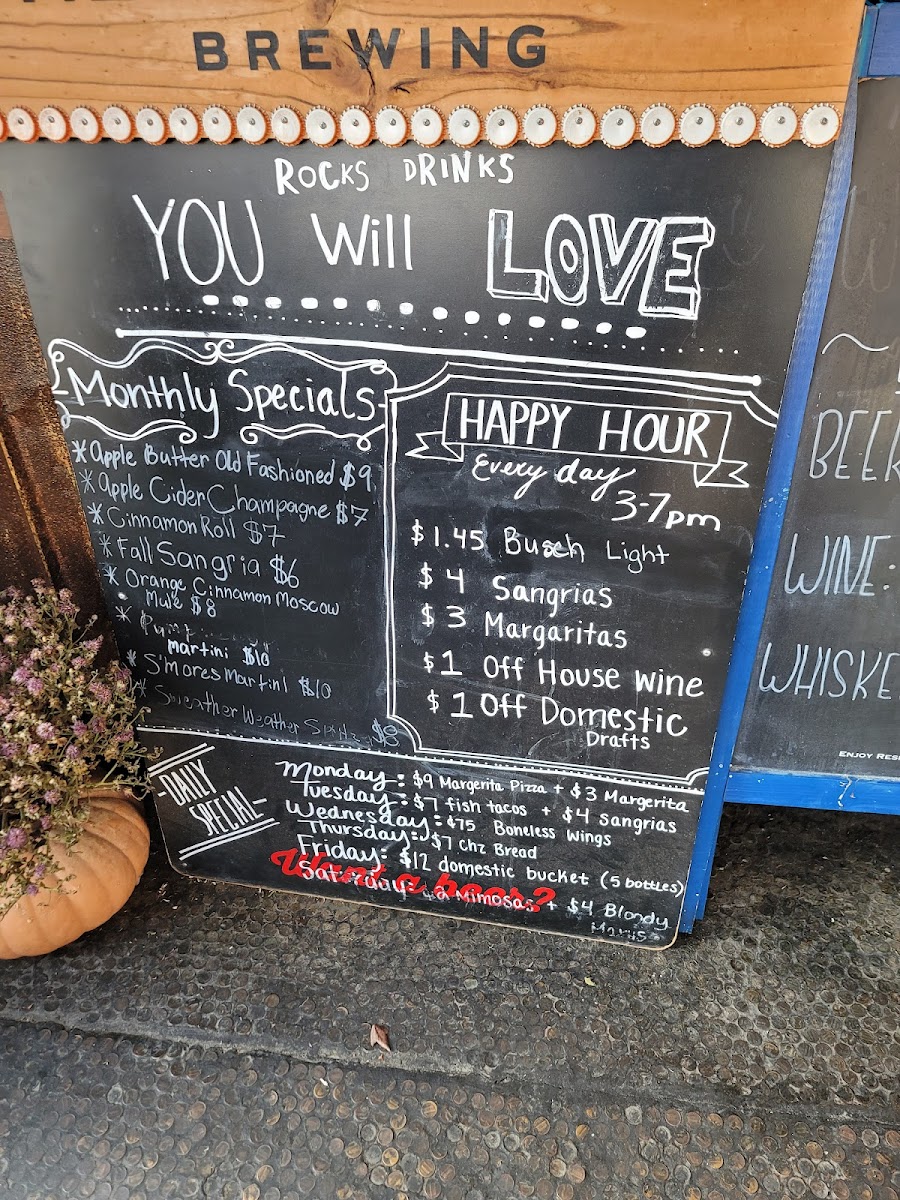 BREWING
ROCKS DRINKS
YOU Will LOVE
Monthly Specials
*Apple Butter Old Fashioned $9
*Apple Cider Champagne $7
*Cinnamon Roll $7
*Fall Sangria $6
*Orange Cinnamon Moscow
Mule $8
*
martini $10
*S'Mores Martini $10
*Sweather Weather $8
HAPPY HOUR
Every day
3-7pm
$1.45 Busch Light
$4 Sangrias
$3 Margaritas
$1 Off House Wine
$1 Off Domestic
Drafts
-DAILY
SPECIAL-
Monday: $9 Margerita Pizza + $3 Margerita
Tuesday: $7 fish tacos + $4 sangrias
Wednesday: $75 Boneless Wings
Thursday: $7 Chz Bread
Friday: $12 domestic bucket (5 bottles)
Saturday: Mimosas + $4 Bloody
Marys
Want a beer?
BEER
WINE:
WHISKE
ENJOY RES